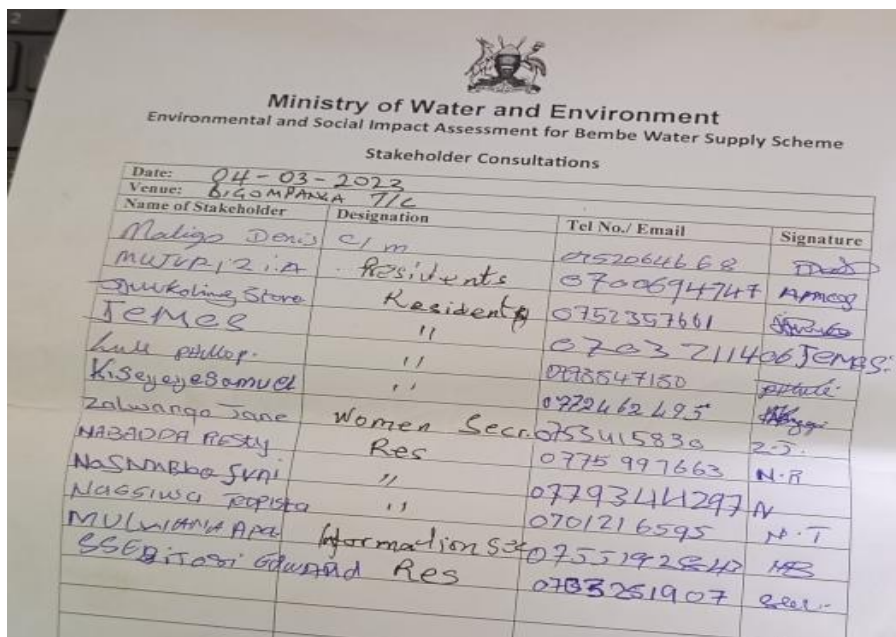 Ministry of Water and Environment
Environmental and Social Impact Assessment for Bembe Water Supply Scheme
Stakeholder Consultations
Date: 04-03-2023
Venue: BIGOMPANKA T/C
Name of Stakeholder Designation Tel No./ Email Signature
Maligo Denis c/m 0752064668
MUTUPIZI.A Residents 0700694747
Store Residents 0752357661
JEMES " 0703211406 JEMES.
Lule pHillop. "
Kiseyeye Samuel " 0772462495
Zalwango Jane Women Secr. 0753415830 Z.J.
NABADDA RESTY Res 0775997663 N.R
" 0779344297 N
NaSSIWa Topista " 0701216595 N.T
Information Sec
SSEBiTOSI EDWARD Res